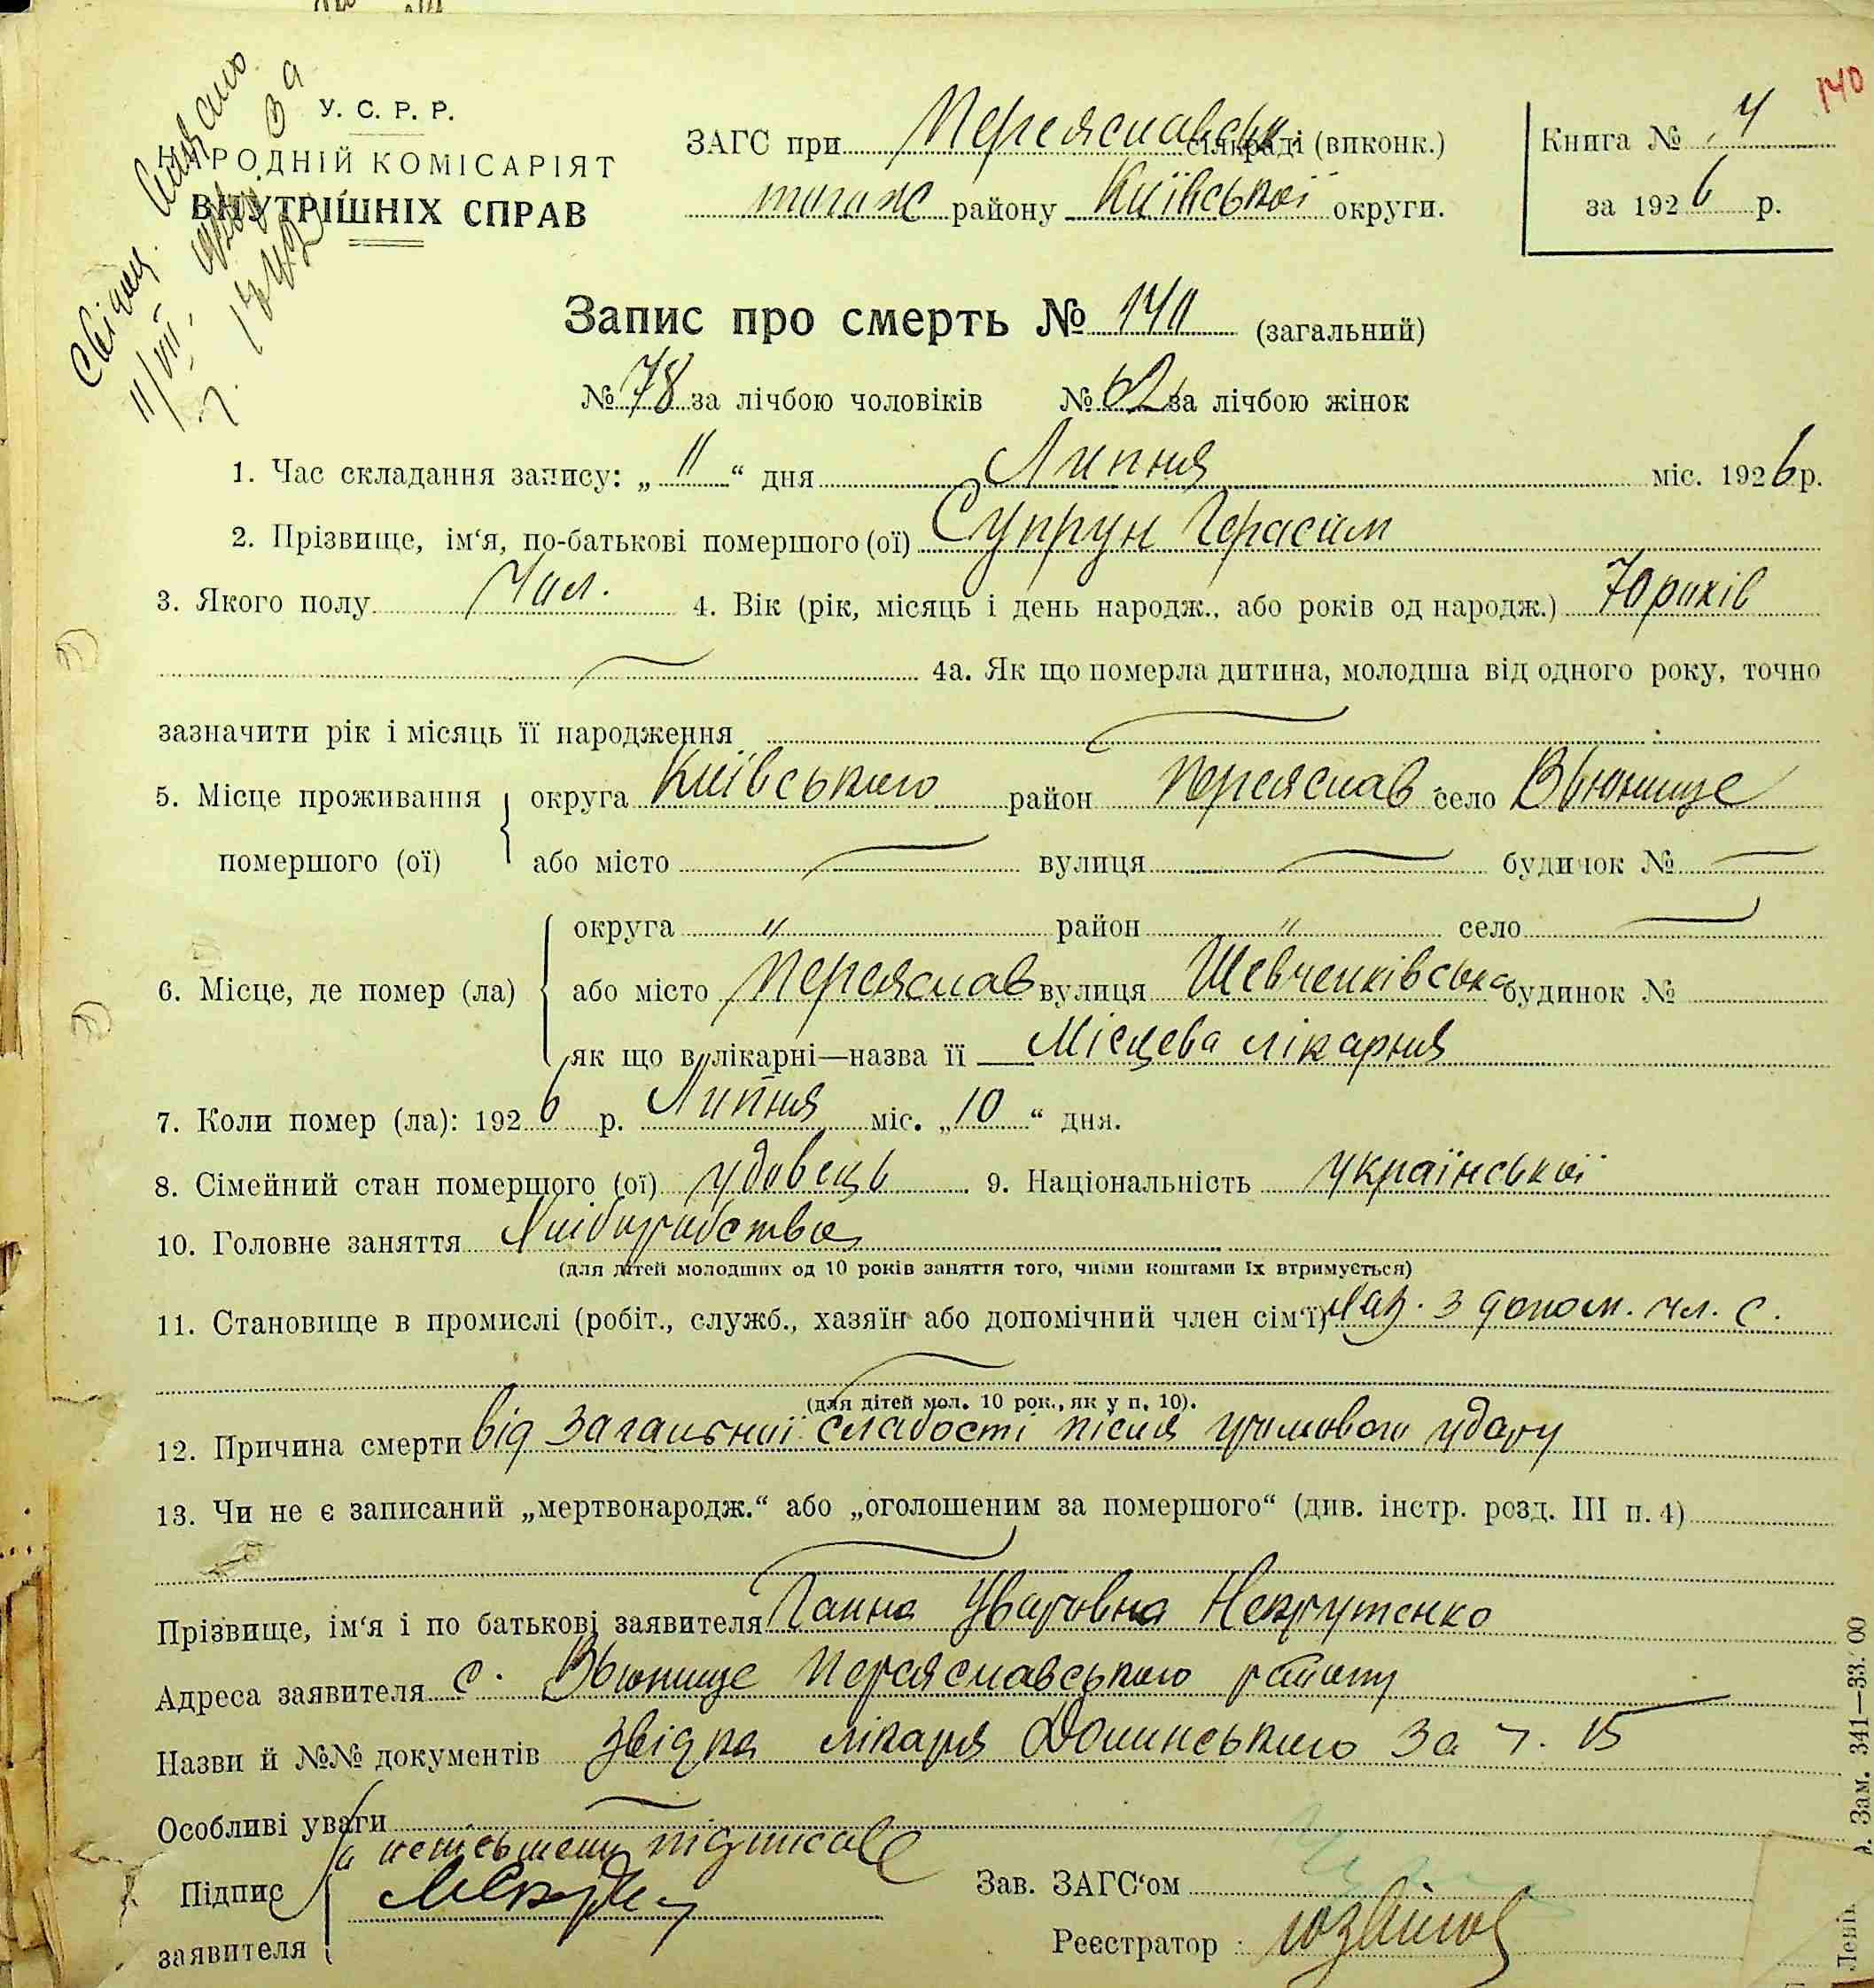 140
Свідец. видано
11/VII. 1926 р за
ч. 1342
У. С. Р. Р.
НАРОДНІЙ КОМІСАРІЯТ
ВНУТРІШНІХ СПРАВ
ЗАГС при Переяславськ. сільраді (виконк.)
того ж району Київської округи.
Книга № 4
за 1926 р.
Запис про смерть № 140 (загальний)
№ 78 за лічбою чоловіків № 62 за лічбою жінок
1. Час складання запису: „ 11 “ дня Липня міс. 1926 р.
2. Прізвище, ім‘я, по-батькові помершого (ої) Супрун Герасим
3. Якого полу Чол. 4. Вік (рік, місяць і день народж., або років од народж.) 70 років
4а. Як що померла дитина, молодша від одного року, точно
зазначити рік і місяць її народження
5. Місце проживання округа Київського район Переяслав село Вьюнище
помершого (ої) або місто вулиця будинок №
округа " район " село
6. Місце, де помер (ла) або місто Переяслав вулиця Шевченківська будинок №
як що в лікарні—назва її Місцева лікарня
7. Коли помер (ла): 1926 р. Липня міс. „ 10 “ дня.
8. Сімейний стан помершого (ої) удовець 9. Національність української
10. Головне заняття Хліборобство
(для дітей молодших од 10 років заняття того, чиїми коштами їх втримується)
11. Становище в промислі (робіт., служб., хазяїн або допомічний член сім‘ї) Хаз. з допом. чл. с.
(для дітей мол. 10 рок., як у п. 10).
12. Причина смерти від загальної слабості після удару
13. Чи не є записаний „мертвонародж.“ або „оголошеним за помершого“ (див. інстр. розд. III п. 4)
Прізвище, ім‘я і по батькові заявителя Ганна Уваровна Непрутенко
Адреса заявителя с. Вьюнище Переяславського району
Назви й №№ документів Звідка лікаря Долинського за ч. 15
Особливі уваги
а неписьмену підписав
Підпис
заявителя
Зав. ЗАГС‘ом
Реєстратор
Зам. 341—33.